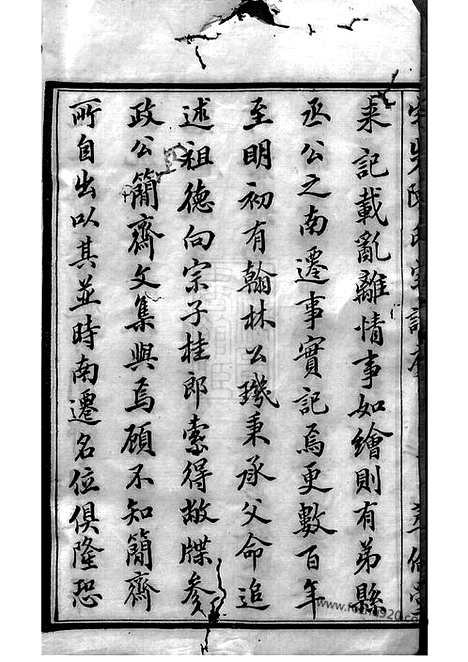 来記載亂離情事如繪則有弟縣
丞公之南遷事實記焉更數百年
至明初有翰林公璣秉承父命追
述祖德向宗子桂郎索得敝牒參
政公簡齋文集與焉顧不知簡齋
所自出以其並時南遷名位俱隆恐